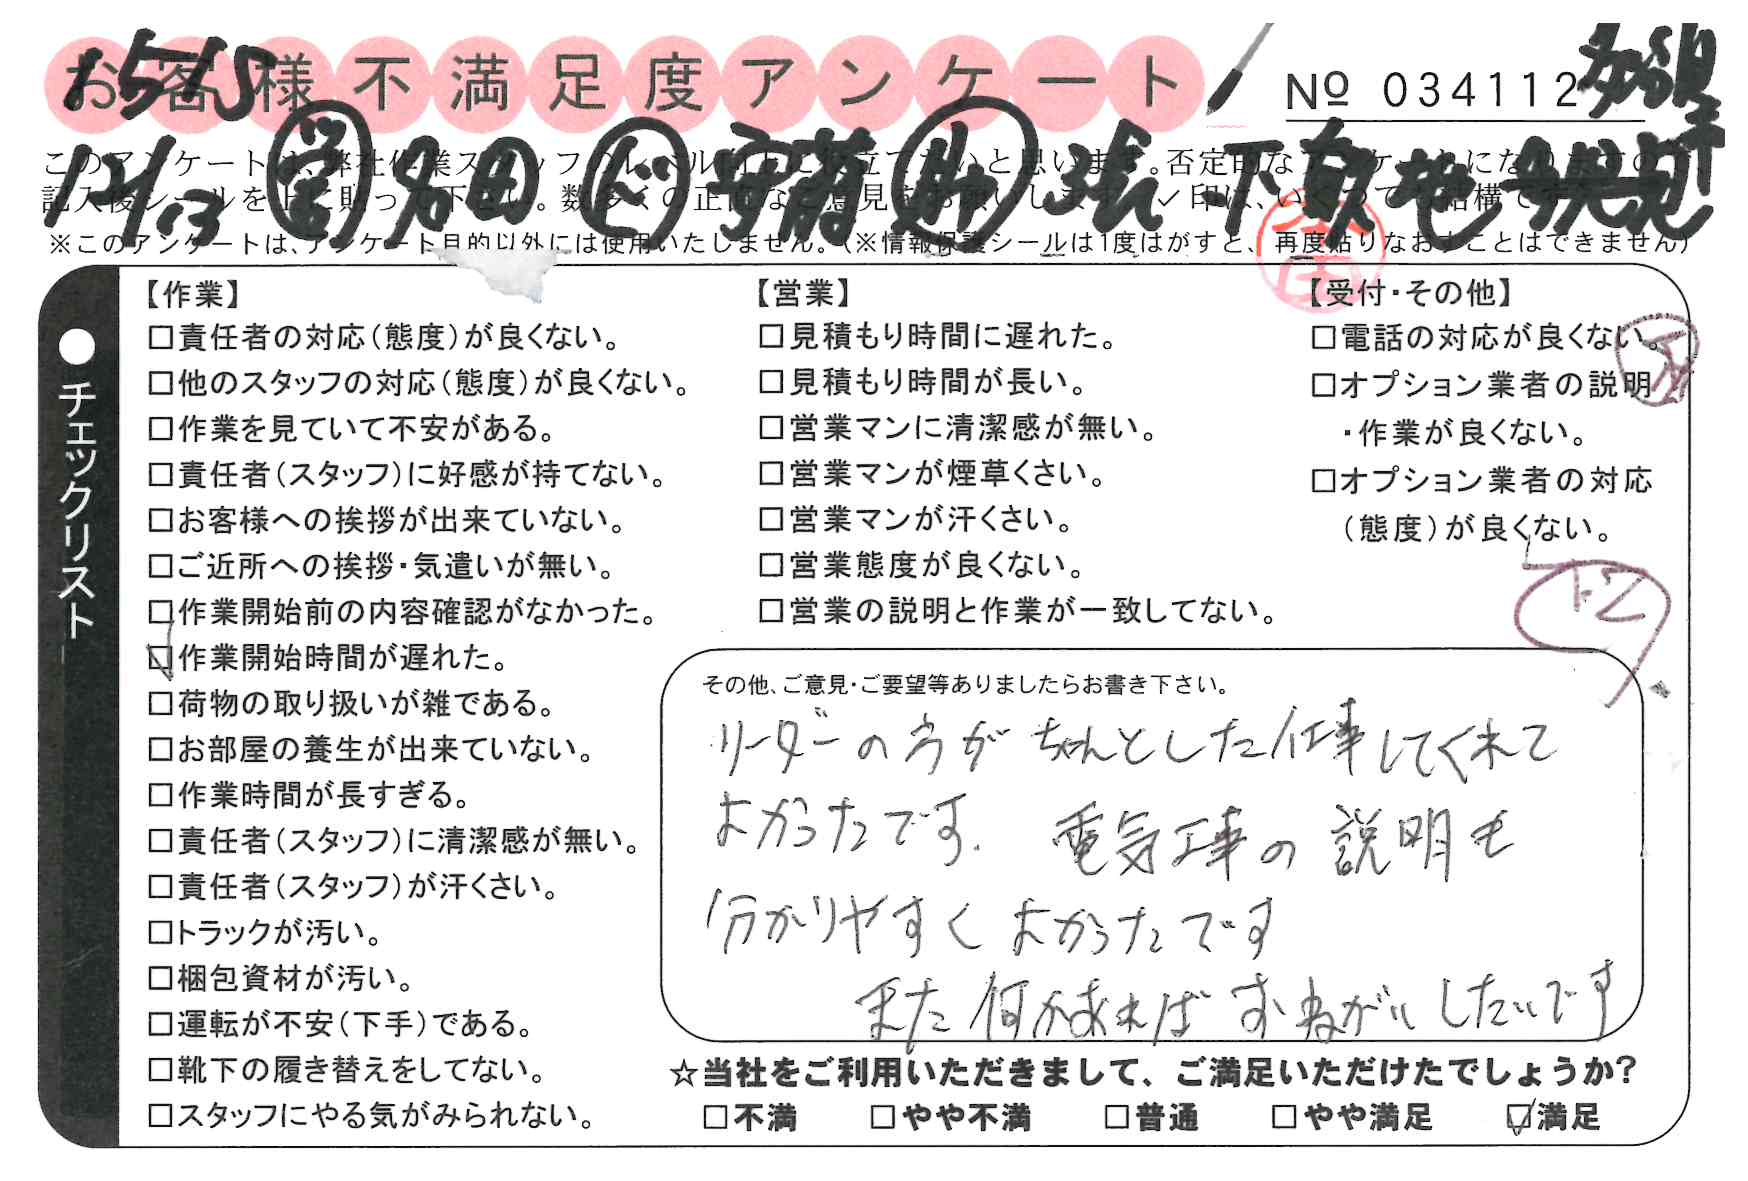 お客様不満足度アンケート
Nº 034112
12/13 営 名田 ド 安藤 助 張 下 敷地
このアンケートは、弊社作業スタッフのレベル向上に役立てたいと思います。否定的なアンケートになりますので
記入後シールを上に貼って下さい。数多くの正直なご意見をお願いします。✓印は、いくつでも結構です。
※このアンケートは、アンケート目的以外には使用いたしません。(※情報保護シールは1度はがすと、再度貼りなおすことはできません)
●チェックリスト
【作業】
□責任者の対応(態度)が良くない。
□他のスタッフの対応(態度)が良くない。
□作業を見ていて不安がある。
□責任者(スタッフ)に好感が持てない。
□お客様への挨拶が出来ていない。
□ご近所への挨拶・気遣いが無い。
□作業開始前の内容確認がなかった。
☑作業開始時間が遅れた。
□荷物の取り扱いが雑である。
□お部屋の養生が出来ていない。
□作業時間が長すぎる。
□責任者(スタッフ)に清潔感が無い。
□責任者(スタッフ)が汗くさい。
□トラックが汚い。
□梱包資材が汚い。
□運転が不安(下手)である。
□靴下の履き替えをしてない。
□スタッフにやる気がみられない。
【営業】
□見積もり時間に遅れた。
□見積もり時間が長い。
□営業マンに清潔感が無い。
□営業マンが煙草くさい。
□営業マンが汗くさい。
□営業態度が良くない。
□営業の説明と作業が一致してない。
【受付・その他】
□電話の対応が良くない。
□オプション業者の説明
・作業が良くない。
□オプション業者の対応
(態度)が良くない。
その他、ご意見・ご要望等ありましたらお書き下さい。
リーダーの方が ちゃんとした仕事してくれて
よかったです. 電気工事の説明も
分かりやすく よかったです
また何かあれば おねがいしたいです
☆当社をご利用いただきまして、ご満足いただけたでしょうか?
□不満 □やや不満 □普通 □やや満足 ☑満足